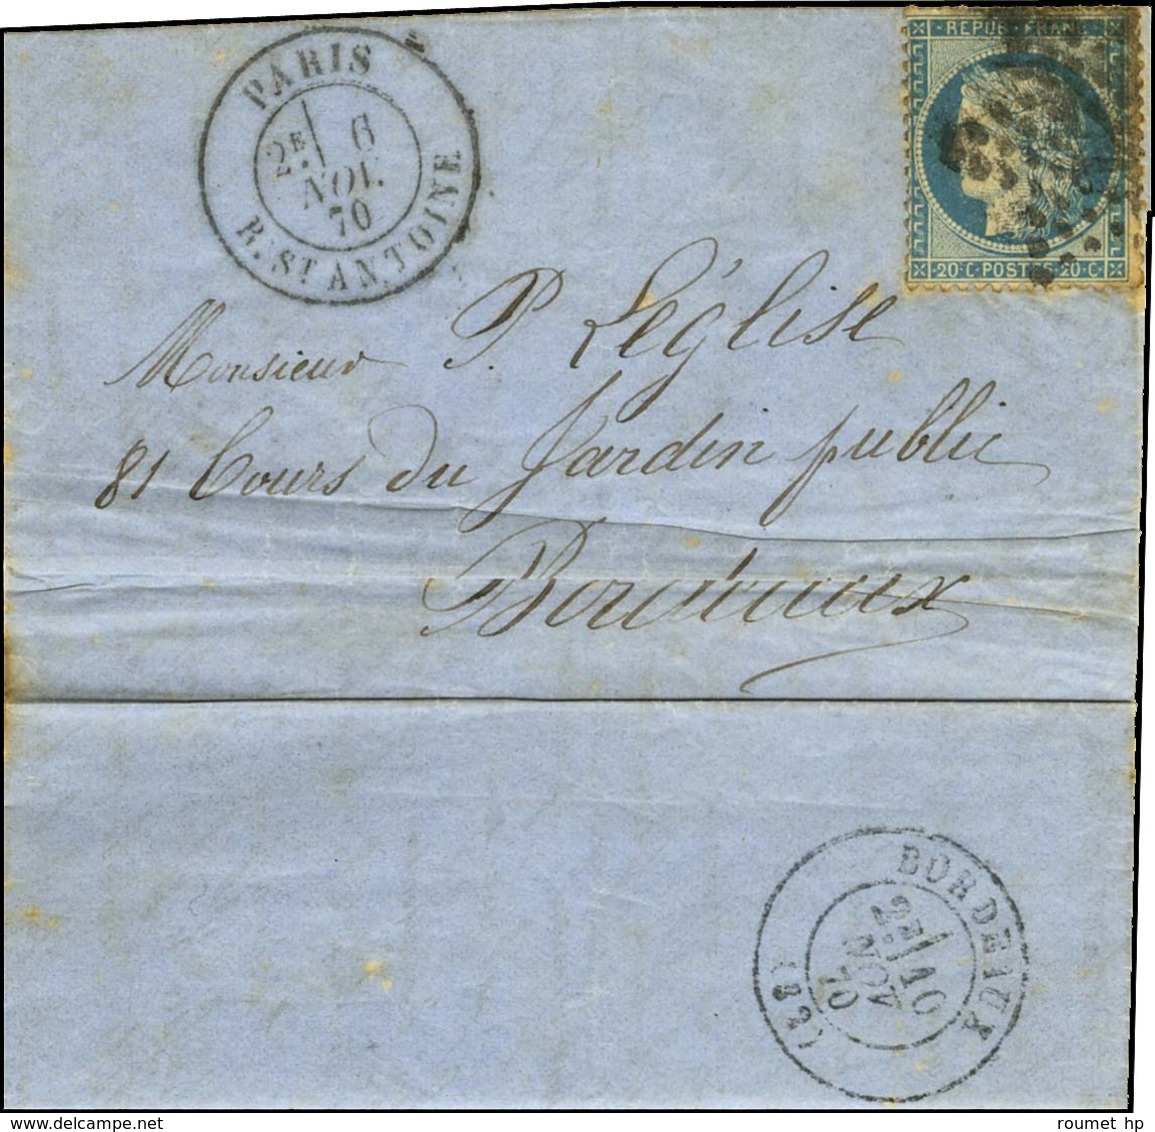 PARIS
2E 6
NOV.
70
R. ST ANTOINE
REPUB. FRANC.
20·C·POSTES·20·C
Monsieur P. Léglise
81 Cours du Jardin public
Bordeaux
BORDEAUX
2E 10
NOV
70
(32)
roumet hp